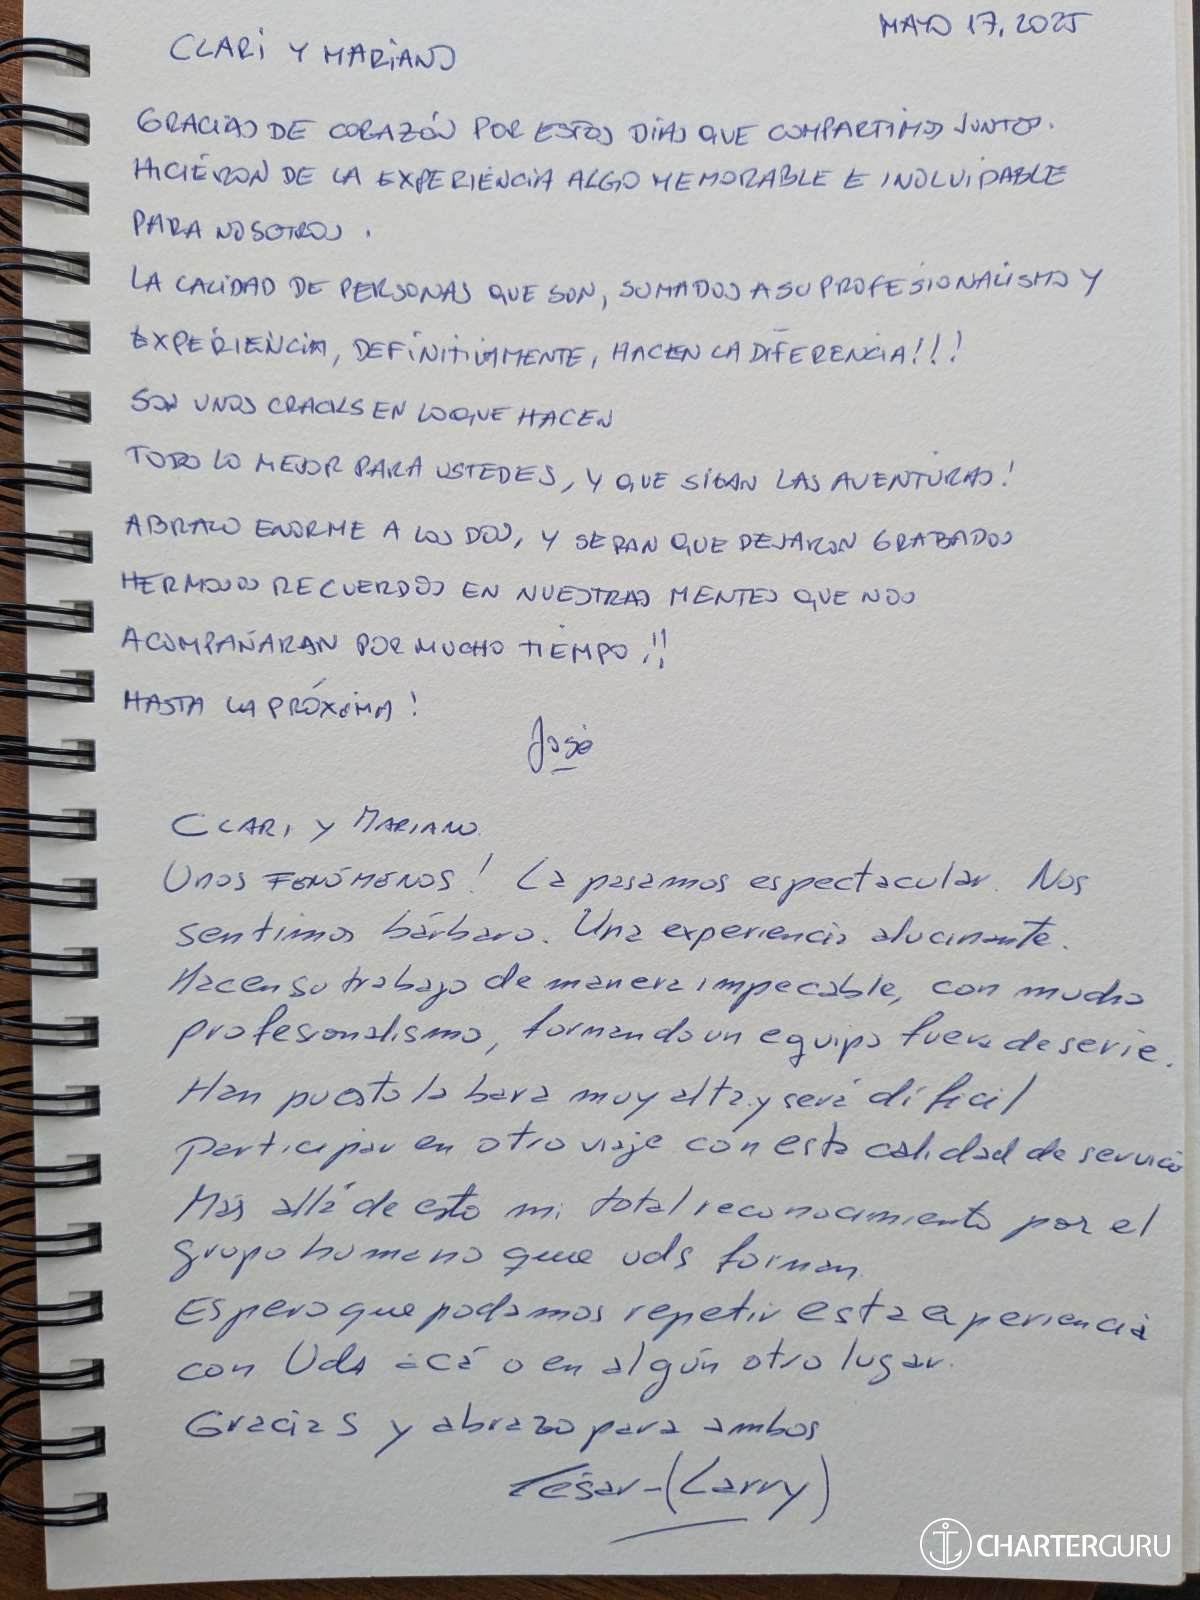 MAYO 17, 2025
CLARI Y MARIANO
GRACIAS DE CORAZÓN POR ESTOS DÍAS QUE COMPARTIMOS JUNTOS.
HICIÉRON DE LA EXPERIENCIA ALGO MEMORABLE E INOLVIDABLE
PARA NOSOTROS.
LA CALIDAD DE PERSONAS QUE SON, SUMADOS A SU PROFESIONALISMO Y
EXPERIENCIA, DEFINITIVAMENTE, HACEN LA DIFERENCIA!!!
SON UNOS CRACKS EN LO QUE HACEN
TODO LO MEJOR PARA USTEDES, Y QUE SIGAN LAS AVENTURAS!
ABRAZO ENORME A LOS DOS, Y SEPAN QUE DEJARON GRABADOS
HERMOSOS RECUERDOS EN NUESTRAS MENTES QUE NOS
ACOMPAÑARAN POR MUCHO TIEMPO!!
HASTA LA PRÓXIMA!
José
CLARI Y MARIANO.
Unos FENÓMENOS! La pasamos espectacular. Nos
sentimos bárbaro. Una experiencia alucinante.
Hacen su trabajo de manera impecable, con mucho
profesionalismo, formando un equipo fuera de serie.
Han puesto la bara muy alta y será difícil
participar en otro viaje con esta calidad de servicio
Más allá de esto mi total reconocimiento por el
grupo humano que uds forman.
Espero que podamos repetir esta experiencia
con Uds acá o en algún otro lugar.
Gracias y abrazo para ambos
César - (Larry)
CHARTERGURU